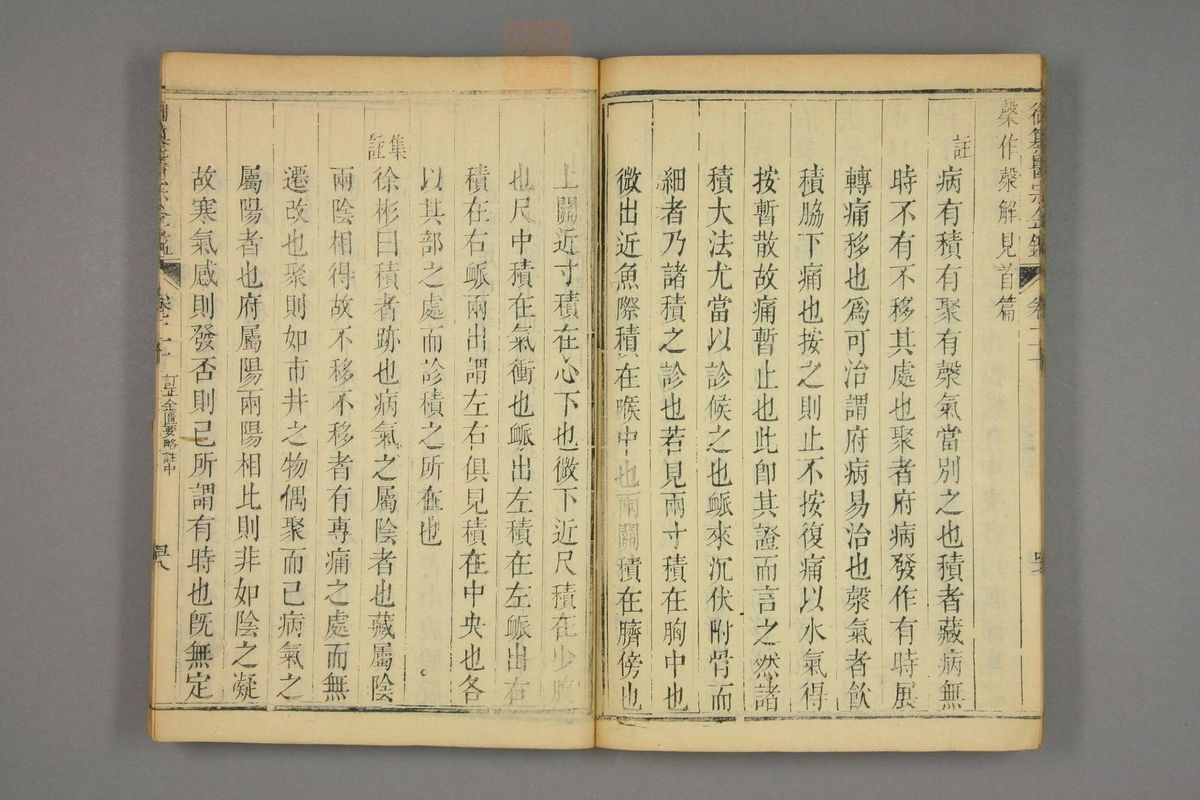 御纂醫宗金鑑 卷二十
槩作槩解見首篇
註
病有積有聚有槩氣當別之也積者藏病無
時不有不移其處也聚者府病發作有時展
轉痛移也爲可治謂府病易治也槩氣者飮
積脇下痛也按之則止不按復痛以水氣得
按暫散故痛暫止也此卽其證而言之然諸
積大法尤當以診候之也衇來沉伏附骨而
細者乃諸積之診也若見兩寸積在胸中也
微出近魚際積在喉中也兩關積在臍傍也
上關近寸積在心下也微下近尺積在少腹
也尺中積在氣衝也衇出左積在左衇出右
積在右衇兩出謂左右俱見積在中央也各
以其部之處而診積之所在也
集註
徐彬曰積者跡也病氣之屬陰者也藏屬陰
兩陰相得故不移不移者有專痛之處而無
遷改也聚則如市井之物偶聚而已病氣之
屬陽者也府屬陽兩陽相比則非如陰之凝
故寒氣感則發否則已所謂有時也旣無定
御纂醫宗金鑑 卷二十 訂正金匱要略註中